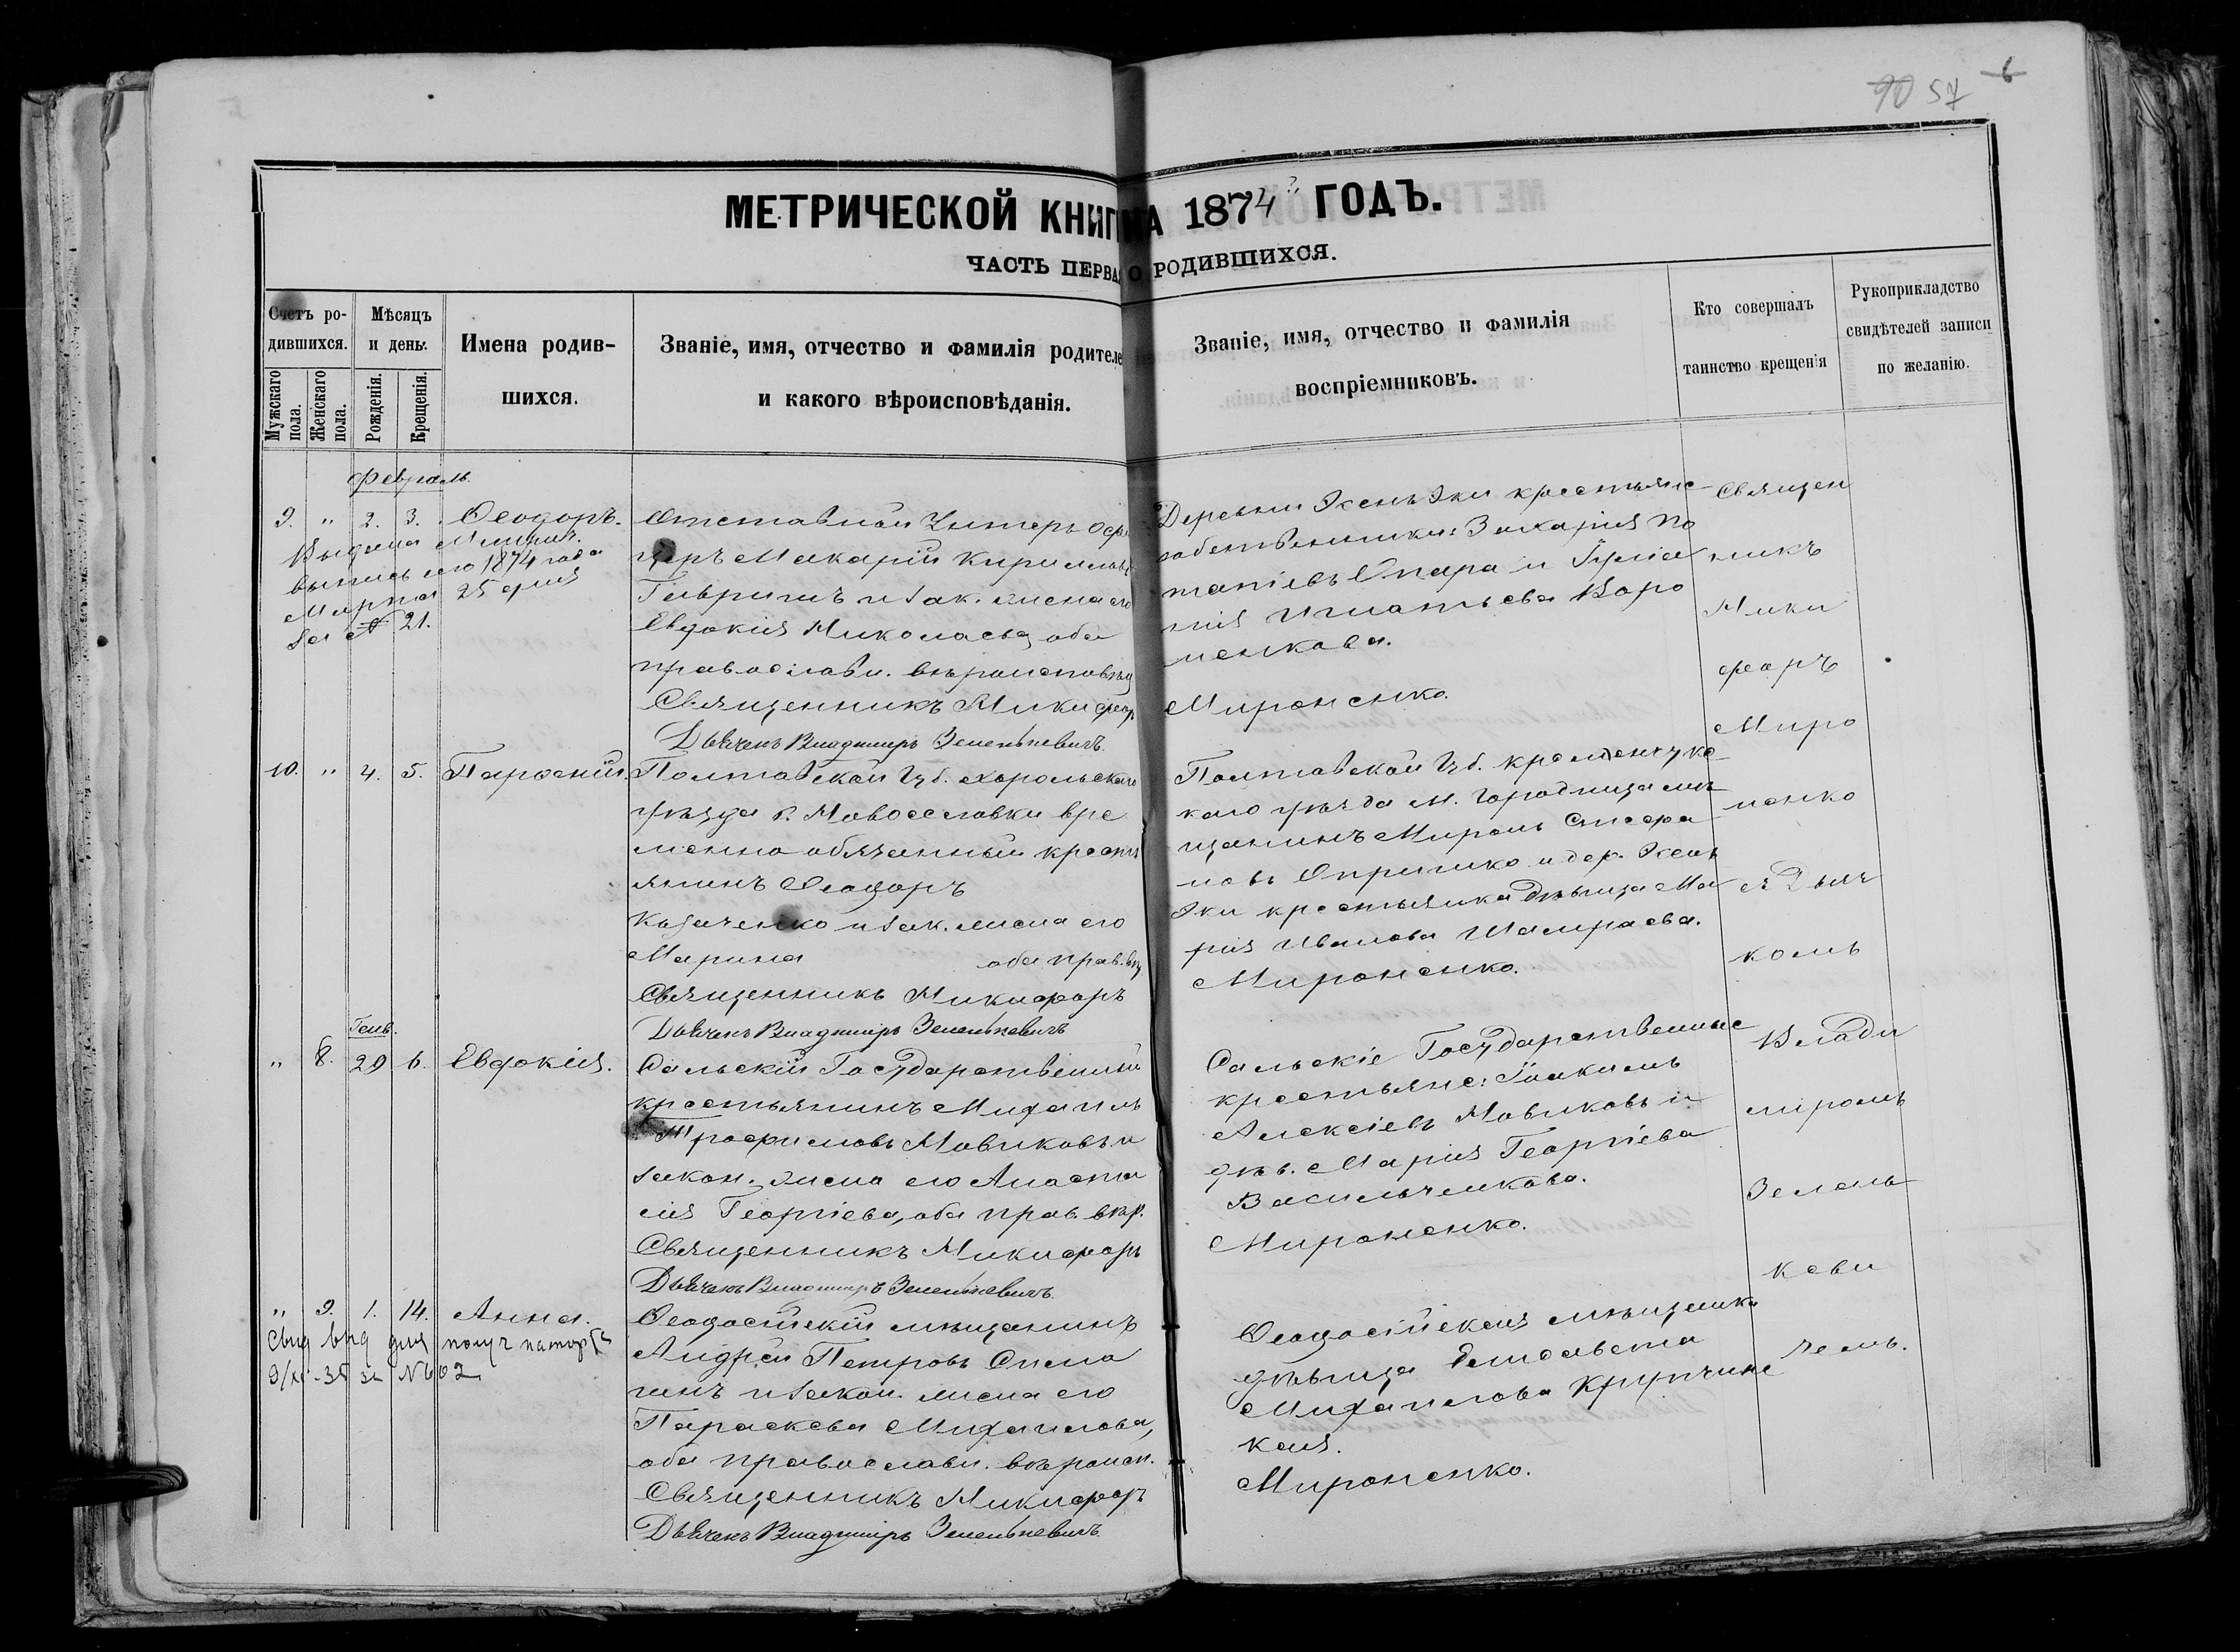 90 57 6
МЕТРИЧЕСКОЙ КНИГИ НА 1874й ГОДЪ.
ЧАСТЬ ПЕРВАЯ О РОДИВШИХСЯ.
Счетъ родившихся.
Мужскаго пола.
Женскаго пола.
Мѣсяцъ и день.
Рожденія.
Крещенія.
Имена родив-
шихся.
Званіе, имя, отчество и фамилія родителе
и какого вѣроисповѣданія.
Званіе, имя, отчество и фамилія
воспріемниковъ.
Кто совершалъ
таинство крещенія
Рукоприкладство
свидѣтелей записи
по желанію.
Февраль
9. " 2. 3. Ѳеодоръ.
Выдана Метрич.
выпись сего 1874 года
Марта 25 дня
за № 21.
Отставной Унтеръ Офи
церъ Макарій Кирилловъ
Гавришъ и зак. жена его
Евдокія Николаева, оба
православн. вѣроисповѣд
Священникъ Никифоръ
Дьячекъ Владиміръ Зеленкевичъ.
Деревни крестьяне
собственники: Захарія По
тапіевъ Опара и Іуліа
нія Игнатьева Воро
ненкова.
Мироненко.
10. " 4. 5. Парѳеній.
Полтавской Губ. Хорольскаго
уѣзда с. Новоселовки вре
менно обязанный кресть
янинъ Ѳеодоръ
Казаченко и зак. жена его
Марина оба прав. вѣ
Священникъ Никифоръ
Дьячекъ Владиміръ Зеленкевичъ
Полтавской Губ. Кременчугс
каго уѣзда м. Городища мѣ
щанинъ Миронъ Стефа
новъ Опришко и дер.
крестьянка дѣвица Ма
рія Иванова Шамраева.
Мироненко.
Генв.
" 8. 29 6. Евдокія.
Сальскій Государственный
крестьянинъ Михаилъ
Трофимовъ Новиковъ и
закон. жена его Анаста
сія Георгіева, оба прав. вѣр.
Священникъ Никифоръ
Дьячекъ Владиміръ Зеленкевичъ.
Сальскіе Государственные
крестьяне: Іоакимъ
Алексіевъ Новиковъ и
дѣв. Марія Георгіева
Васильченкова.
Мироненко.
" 9. 1. 14. Анна.
Свид выд для получ паспорта
за № 602
Ѳеодосійскій мѣщанинъ
Андрей Петровъ Сима
чинъ и закон. жена его
Параскева Михаилова,
оба православн. вѣроисп.
Священникъ Никифоръ
Дьячекъ Владиміръ Зеленкевичъ.
Ѳеодосійская мѣщанка
дѣвица Елисавета
Михаилова Крупчинс
кая.
Мироненко.
Священ
никъ
Ники
форъ
Миро
ненко
съ Дьяч
комъ
Влади
міромъ
Зелень
кеви
чемъ.